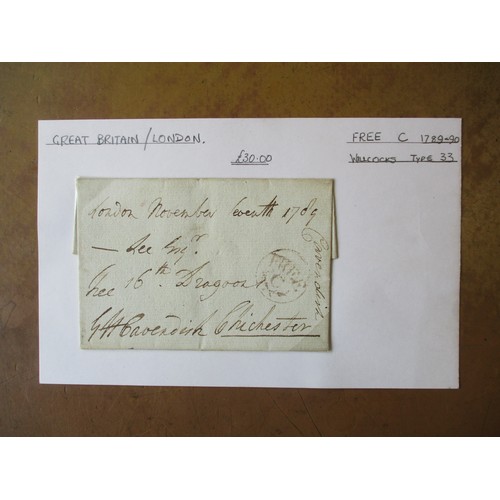 GREAT BRITAIN / LONDON.
FREE C 1789-90
£30.00
WILLCOCKS TYPE 33
London November 1789
— Lee Esqr.
Free 16th Dragoons
FREE
C
Cavendish
GH Cavendish Chichester